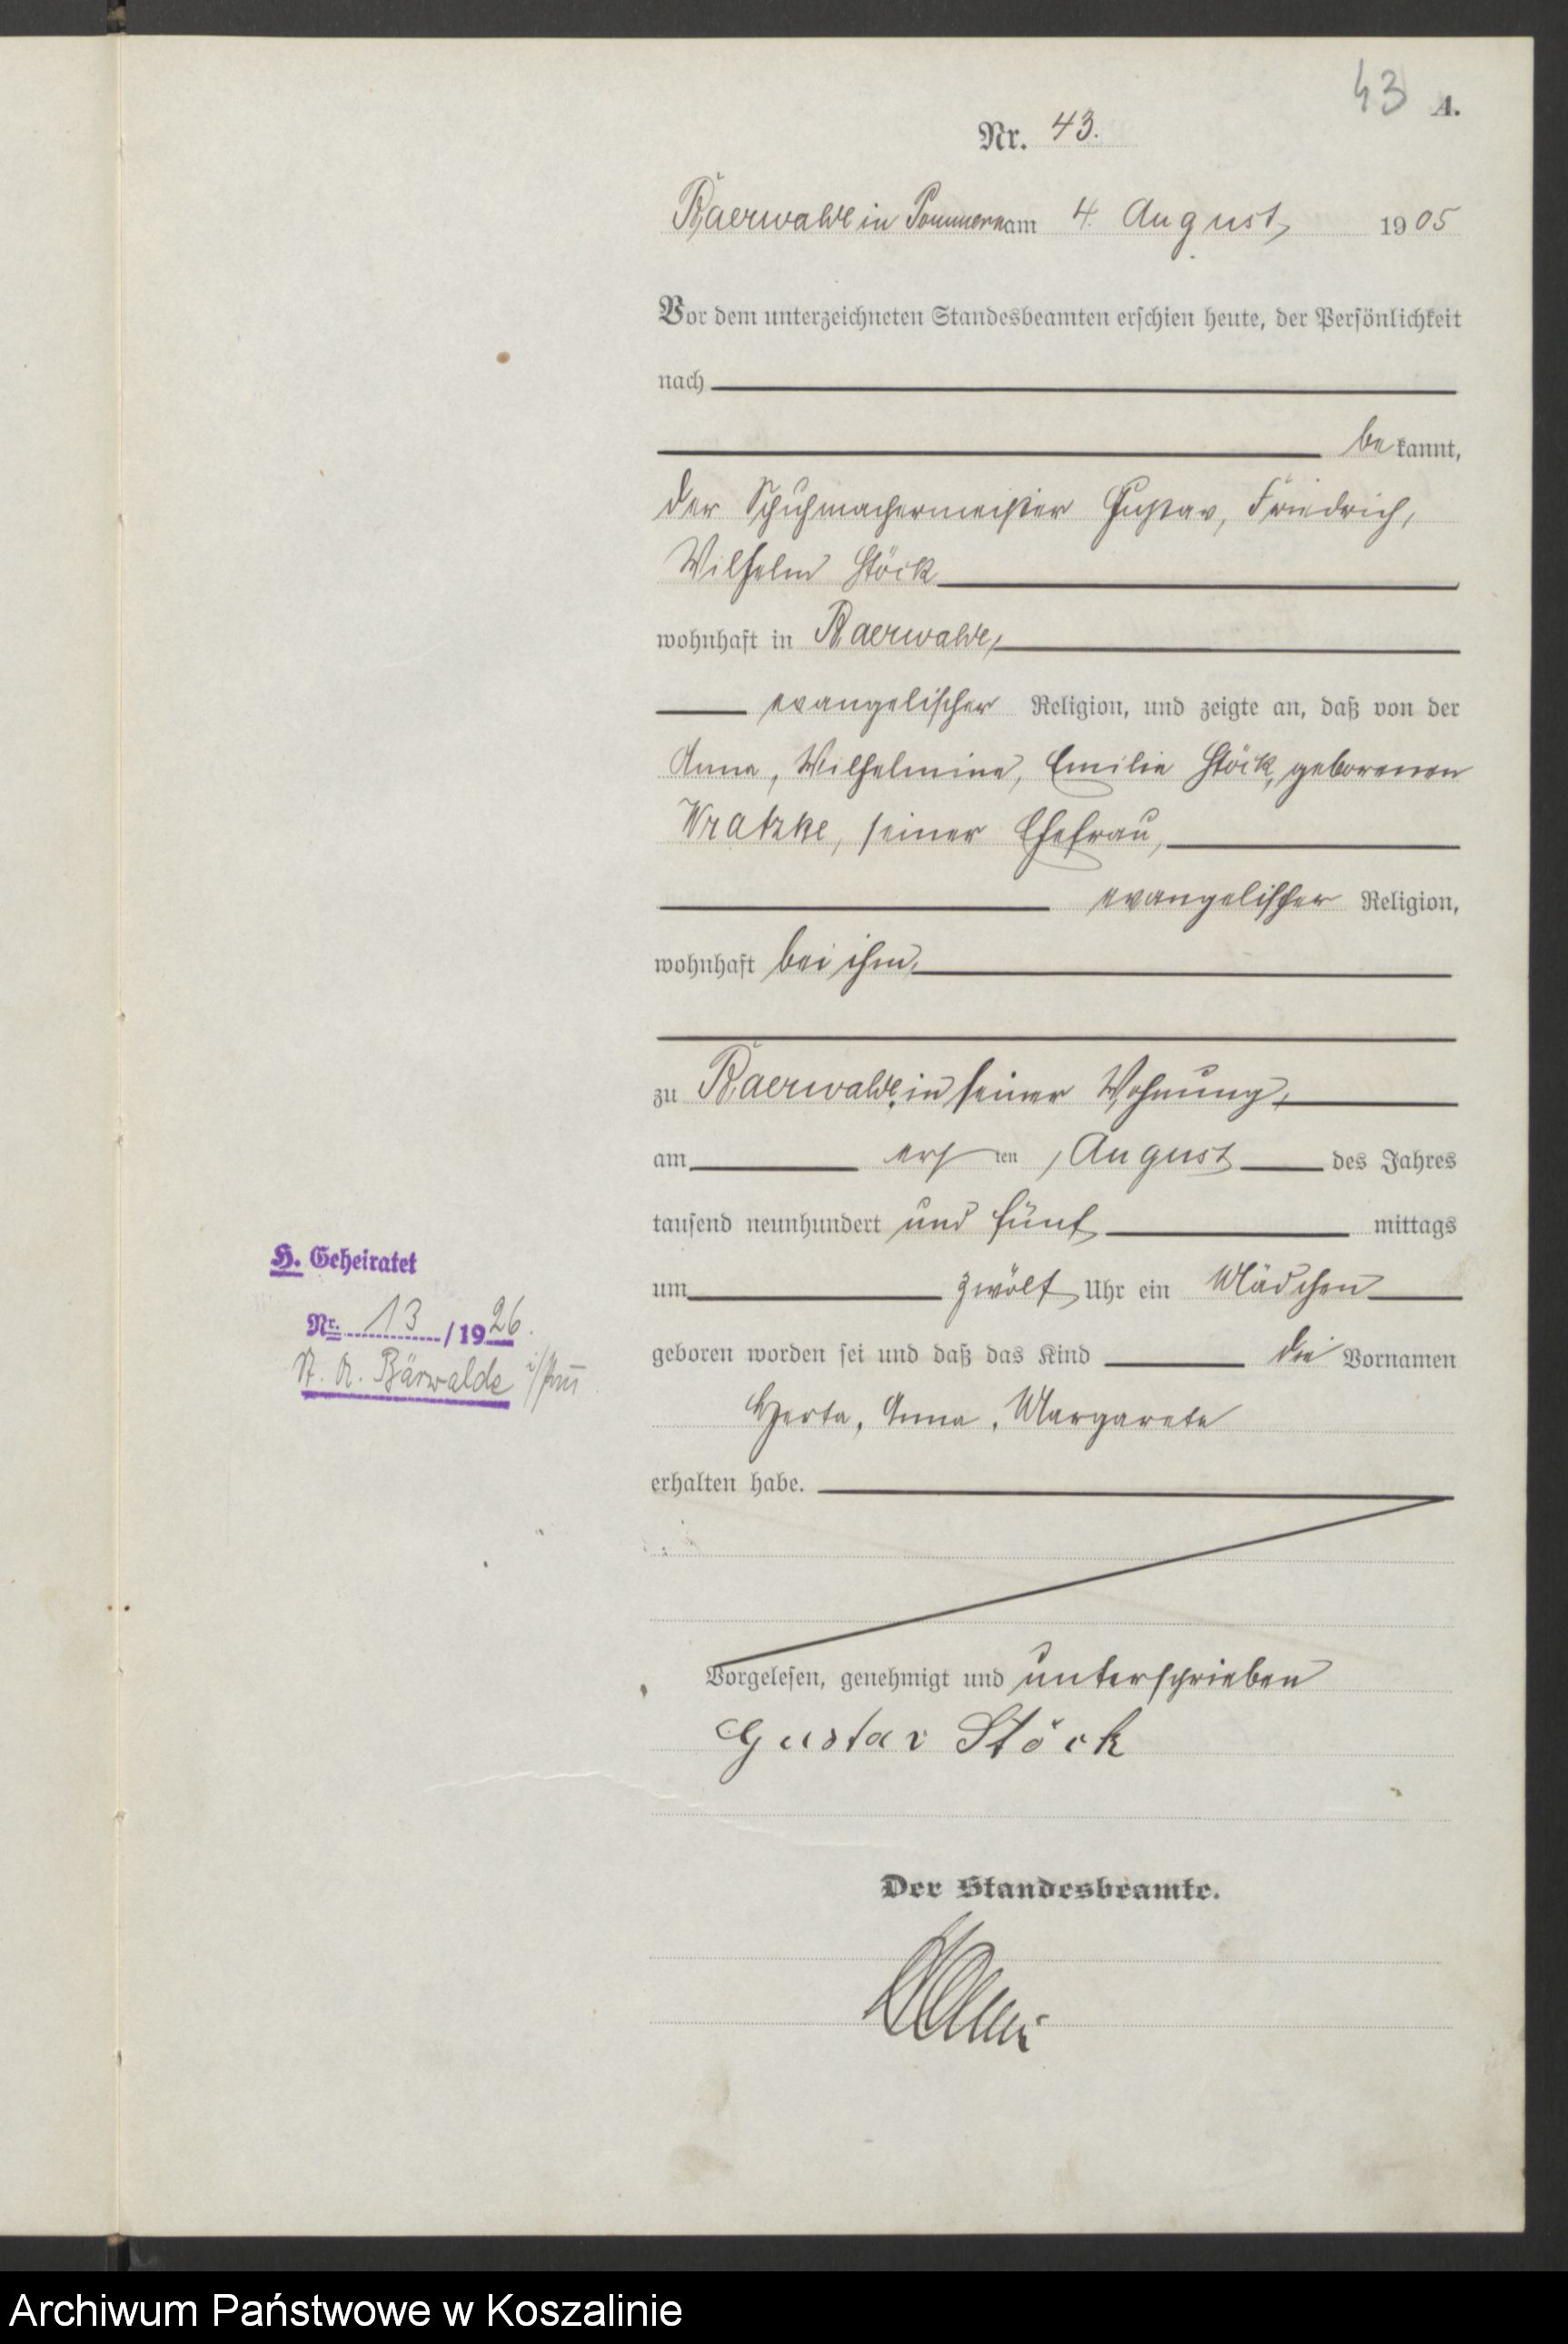 43 A.
Nr. 43.
Baerwalde in Pommern am 4. August 1905
Vor dem unterzeichneten Standesbeamten erschien heute, der Persönlichkeit
nach
be kannt,
der Schuhmachermeister Gustav, Friedrich,
Wilhelm Stöck
wohnhaft in Baerwalde,
evangelischer Religion, und zeigte an, daß von der
Anna, Wilhelmine, Emilie Stöck, geborenen
Wratzke, seiner Ehefrau,
evangelischer Religion,
wohnhaft bei ihm,
zu Baerwalde, in seiner Wohnung,
am ersten August des Jahres
tausend neunhundert und fünf mittags
um zwölf Uhr ein Mädchen
geboren worden sei und daß das Kind die Vornamen
Herta, Anna, Margarete
erhalten habe.
Vorgelesen, genehmigt und unterschrieben
Gustav Stöck
Der Standesbeamte.
H. Geheiratet
Nr. 13 / 1926.
St. A. Bärwalde i/Pom
Archiwum Państwowe w Koszalinie